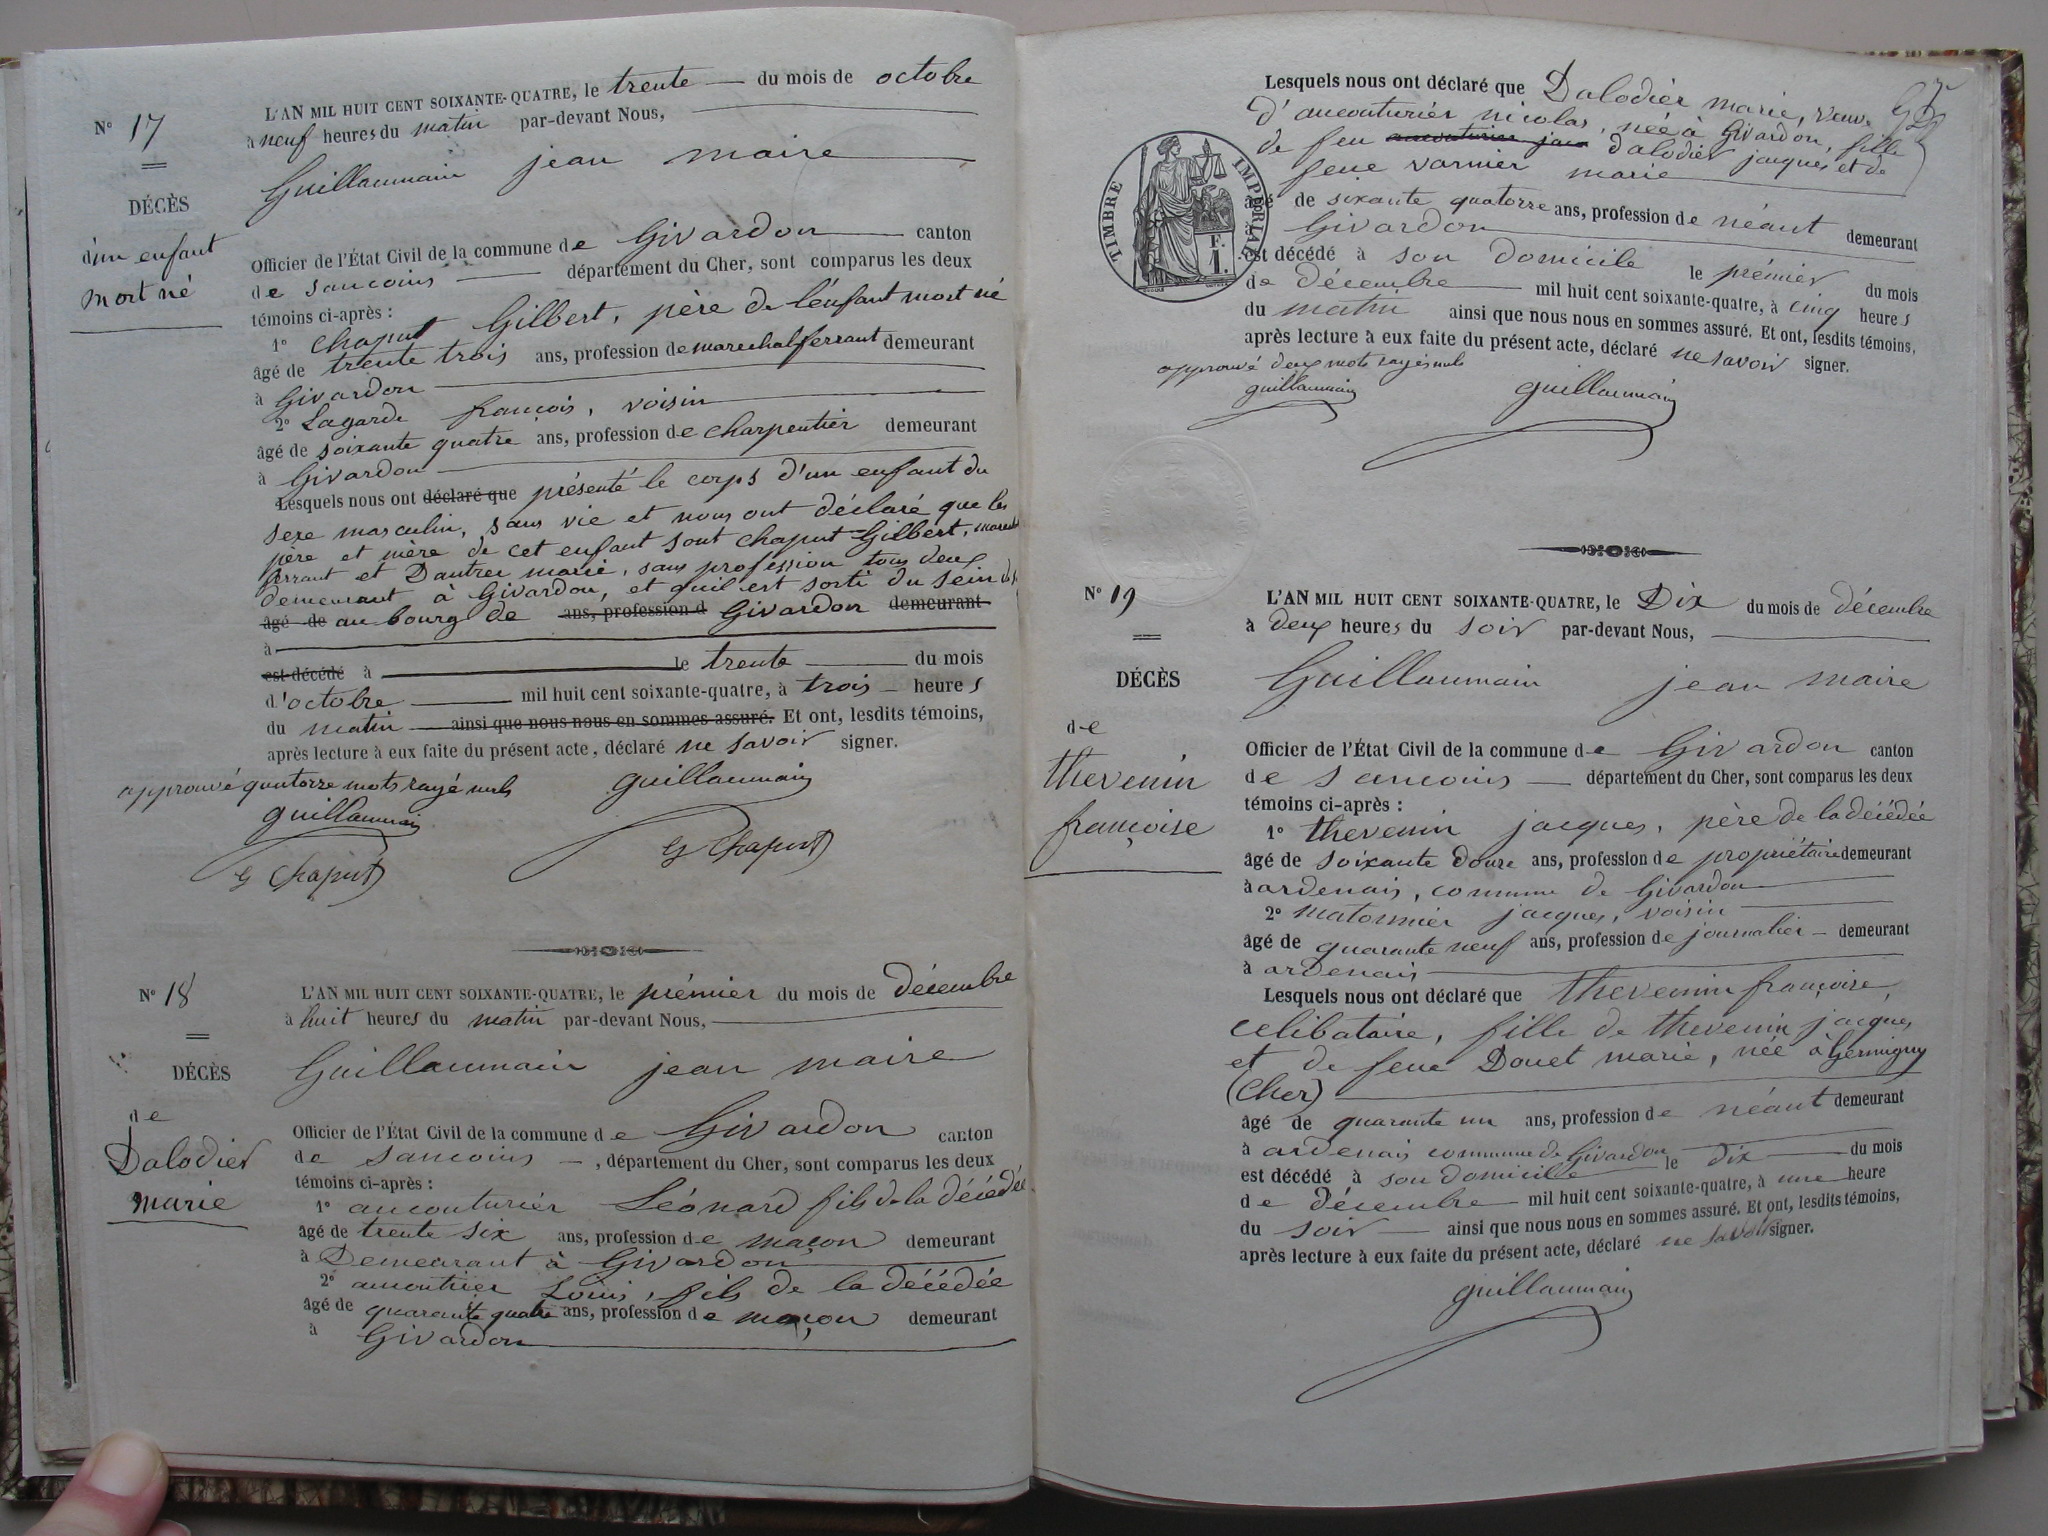 N° 17
DÉCÈS
d'un enfant
mort né
L'AN MIL HUIT CENT SOIXANTE-QUATRE, le trente du mois de octobre
à neuf heures du matin par-devant Nous,
Guillaumain jean maire
Officier de l'État Civil de la commune de Givardon canton
de Sancoins département du Cher, sont comparus les deux
témoins ci-après :
1° chaput Gilbert, père de l'enfant mort né
âgé de trente trois ans, profession de marechal ferrant demeurant
à Givardon
2° Lagarde françois, voisin
âgé de soixante quatre ans, profession de charpentier demeurant
à Givardon
Lesquels nous ont déclaré que présenté le corps d'un enfant du
sexe masculin, sans vie et nous ont déclaré que les
père et mère de cet enfant sont chaput Gilbert,
ferrant et Dautrer marie, sans profession tous deux
demeurant à Givardon, et qu'il est sorti du sein
âgé de au bourg de ans, profession d Givardon demeurant
à
est décédé à le trente du mois
d'octobre mil huit cent soixante-quatre, à trois heures
du matin ainsi que nous nous en sommes assuré. Et ont, lesdits témoins,
après lecture à eux faite du présent acte, déclaré ne savoir signer.
approuvé quatorze mots rayé nuls
guillaumain
guillaumain
G Chaput
G Chaput
N° 18
DÉCÈS
de
Dalodier
marie
L'AN MIL HUIT CENT SOIXANTE-QUATRE, le prémier du mois de décembre
à huit heures du matin par-devant Nous,
Guillaumain jean maire
Officier de l'État Civil de la commune de Givardon canton
de Sancoins, département du Cher, sont comparus les deux
témoins ci-après :
1° aucouturier Léonard fils de la décédée
âgé de trente six ans, profession de maçon demeurant
à Demeurant à Givardon
2° aucoutrier Louis, fils de la décédée
âgé de quarante quatre ans, profession de maçon demeurant
à Givardon
Lesquels nous ont déclaré que Dalodier marie, veuve
d'aucouturier nicolas, née à Givardon, fille
de feu aucouturier jacq dalodier jacques et de
feue varnier marie
âgé de sixante quatorze ans, profession de néant demeurant
Givardon
est décédé à son domicile le prémier du mois
de décembre mil huit cent soixante-quatre, à cinq heures
du matin ainsi que nous nous en sommes assuré. Et ont, lesdits témoins,
après lecture à eux faite du présent acte, déclaré ne savoir signer.
approuvé deux mots rayés nuls
guillaumain guillaumain
TIMBRE IMPÉRIAL
F.
1.
N° 19
DÉCÈS
de
thevenin
françoise
L'AN MIL HUIT CENT SOIXANTE-QUATRE, le Dix du mois de décembre
à deux heures du soir par-devant Nous,
Guillaumain jean maire
Officier de l'État Civil de la commune de Givardon canton
de Sancoins département du Cher, sont comparus les deux
témoins ci-après :
1° thevenin jacques, père de la décédée
âgé de soixante douze ans, profession de propriétaire demeurant
à ardenais, commune de Givardon
2° matonnier jacques, voisin
âgé de quarante neuf ans, profession de journalier demeurant
à ardenais
Lesquels nous ont déclaré que thevenin françoise,
celibataire, fille de thevenin jacques
et de feue Douet marie, née à Germigny
(Cher)
âgé de quarante un ans, profession de néant demeurant
à ardenais commune de Givardon
est décédé à son domicile le dix du mois
de décembre mil huit cent soixante-quatre, à une heure
du soir ainsi que nous nous en sommes assuré. Et ont, lesdits témoins,
après lecture à eux faite du présent acte, déclaré ne savoir signer.
guillaumain